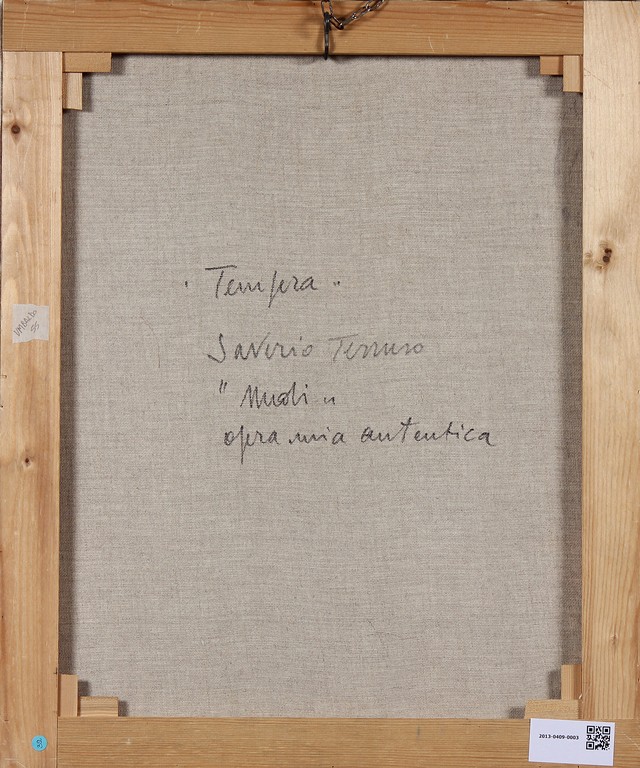 "Tempera"
Saverio Terruso
"Nudi"
opera mia autentica
55
2013-0409-0003